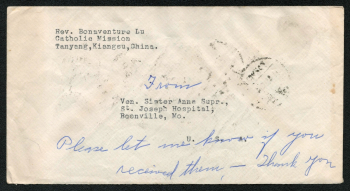 Rev. Bonaventure Lu
Catholic Mission
Tanyang,Kiangsu,China.
From
Ven. Sister Anne Supr.,
St. Joseph Hospital;
Boonville, Mo.
U.
Please let me know if you
received them, — Thank you